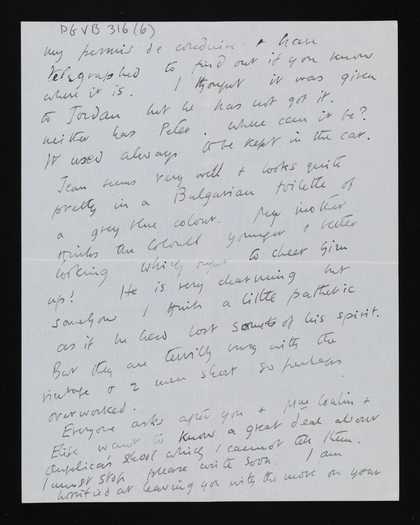 DGVB 316(6)
my permis de conduire. & have
telegraphed to find out if you know
where it is. I thought it was given
to Jordan but he has not got it.
neither has Peter. where can it be?
It used always to be kept in the car.
Jean seems very well & looks quite
pretty in a Bulgarian toilette of
a grey blue colour. My mother
thinks the Colonel younger & better
looking which ought to cheer him
up! He is very charming but
somehow I think a little pathetic
as if he had lost some of his spirit.
But they are terribly busy with the
vintage & 2 men short so perhaps
overworked.
Everyone asks after you &
Elsie want to know a great deal about
school which I cannot tell them.
I must stop please write soon. I am
horrified at leaving you with the move on your